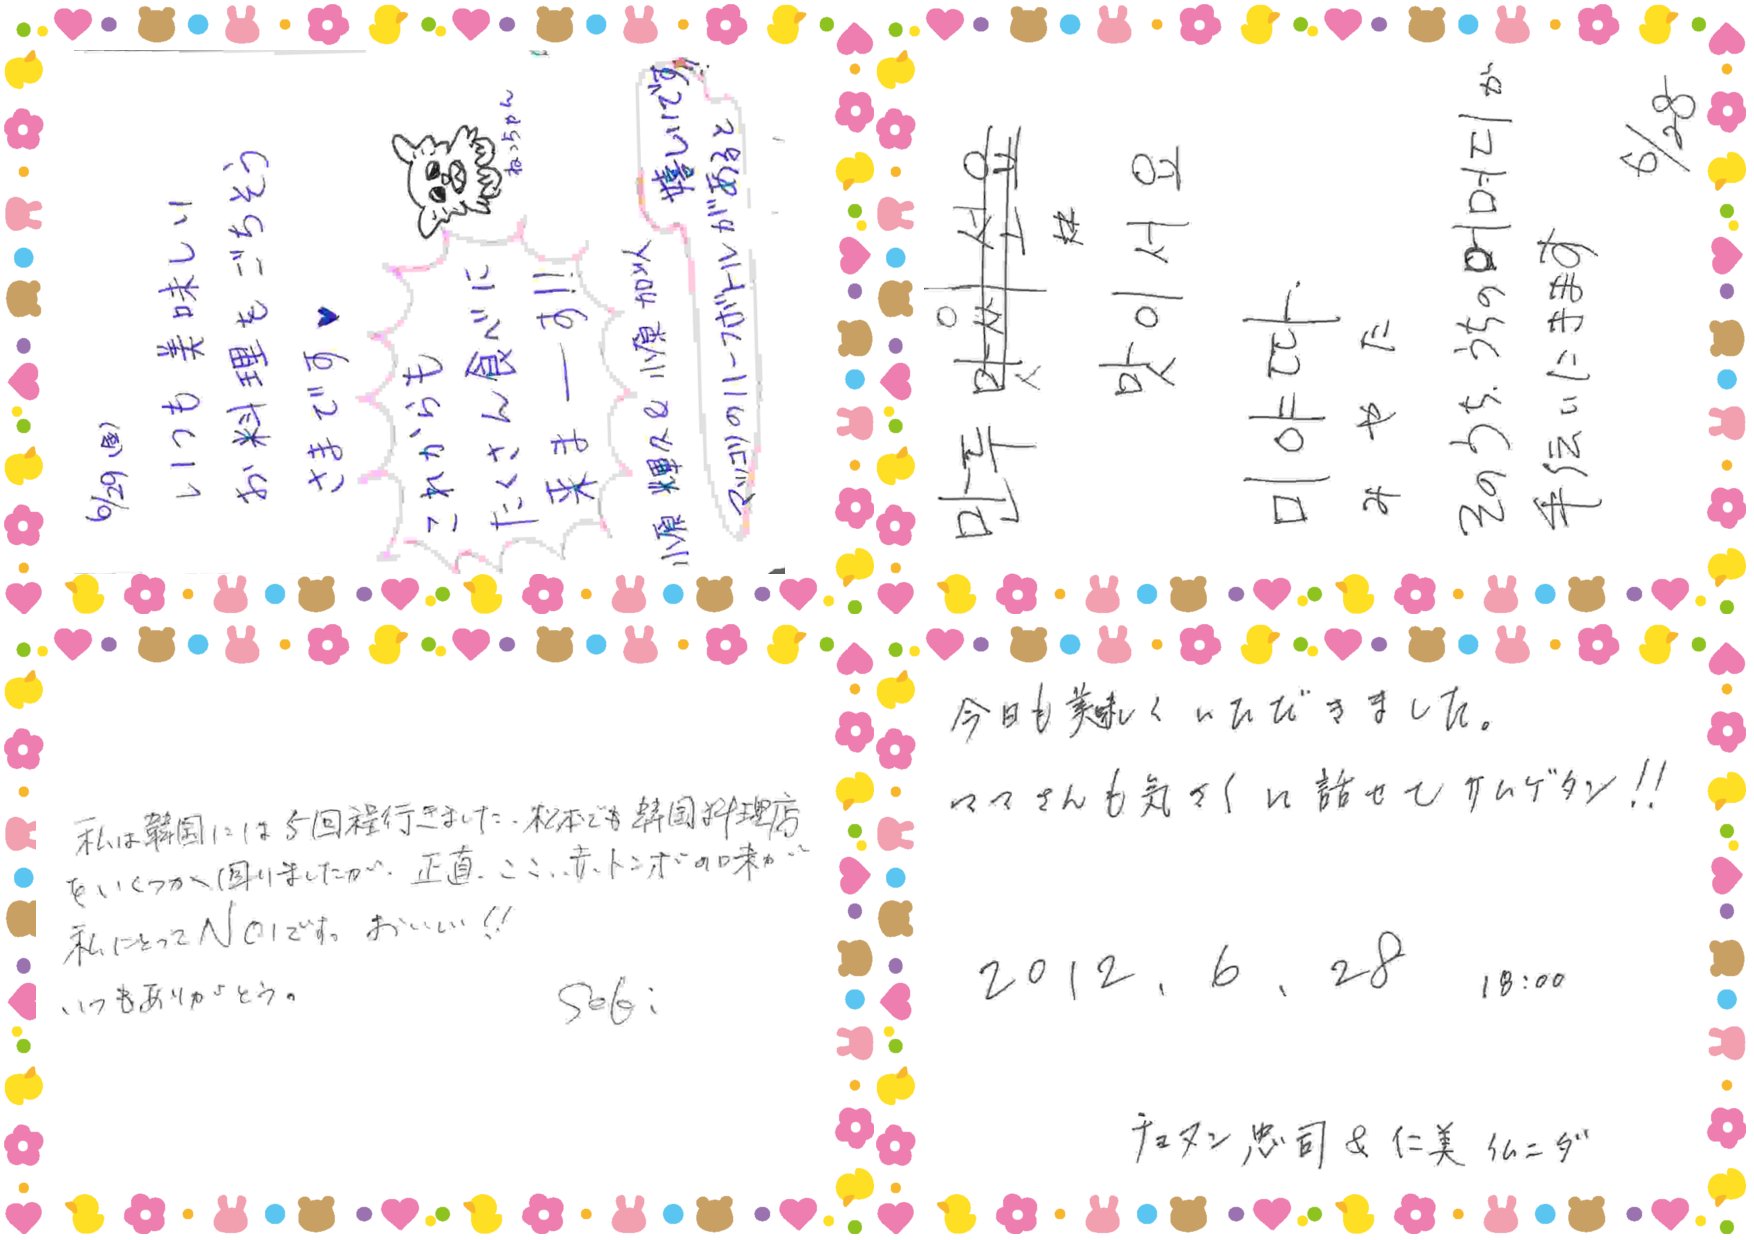 6/29(金)
いつも美味しい
お料理をごちそう
さまです♥
これからも
たくさん食べに
来ま――す!!
ねっちゃん
小原 輝久 & 小原 加奴
マッコリのハーフボトルがあると
嬉しいです!!
만두
맛이서요
미야따.
みやた
そのうち、うちの어머디が
手伝いにきます
6/28
私は韓国には5回程行きました。松本でも韓国料理店
をいくつか回りましたが、正直、ここ、赤トンボの味が
私にとってNO1です。おいしい!!
いつもありがとう。
SeGi
今日も美味しくいただきました。
ママさんも気さくに話せてサムゲタン!!
2012.6.28 18:00
チョタン 忠司 & 仁美 イムニダ